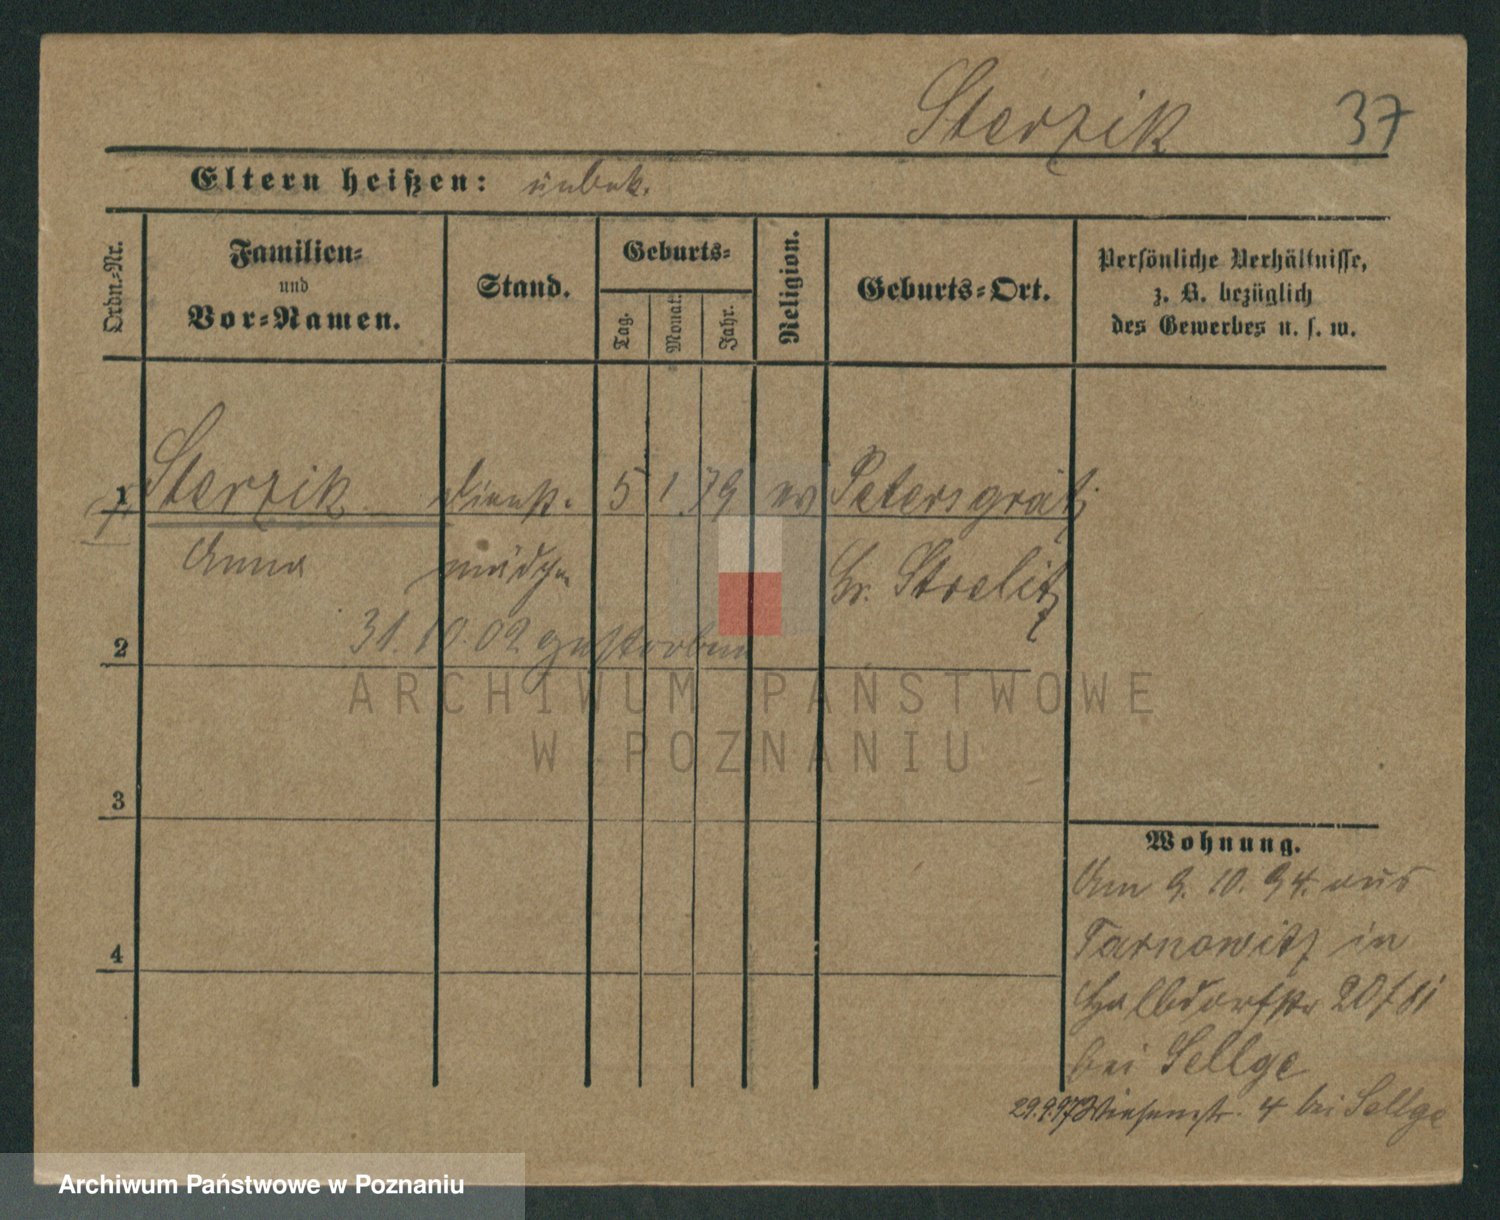 Sterzik 37
Eltern heißen: unbek.
Ordn.-Nr.
Familien-
und
Vor-Namen.
Stand.
Geburts-
Tag.
Monat.
Jahr.
Religion.
Geburts-Ort.
Persönliche Verhältnisse,
z. B. bezüglich
des Gewerbes u. s. w.
1 Sterzik Dienst- 5 1. 79 ev Petersgrätz
Anna mädchen Kr. Strelitz
31.10.02 gestorben
2
ARCHIWUM PAŃSTWOWE
W POZNANIU
3
Wohnung.
Am 9.10.94. aus
Tarnowitz in
4
Halbdorfstr 20
bei Sellge
29.9.97 Wiesenstr. 4 bei Sellge
Archiwum Państwowe w Poznaniu